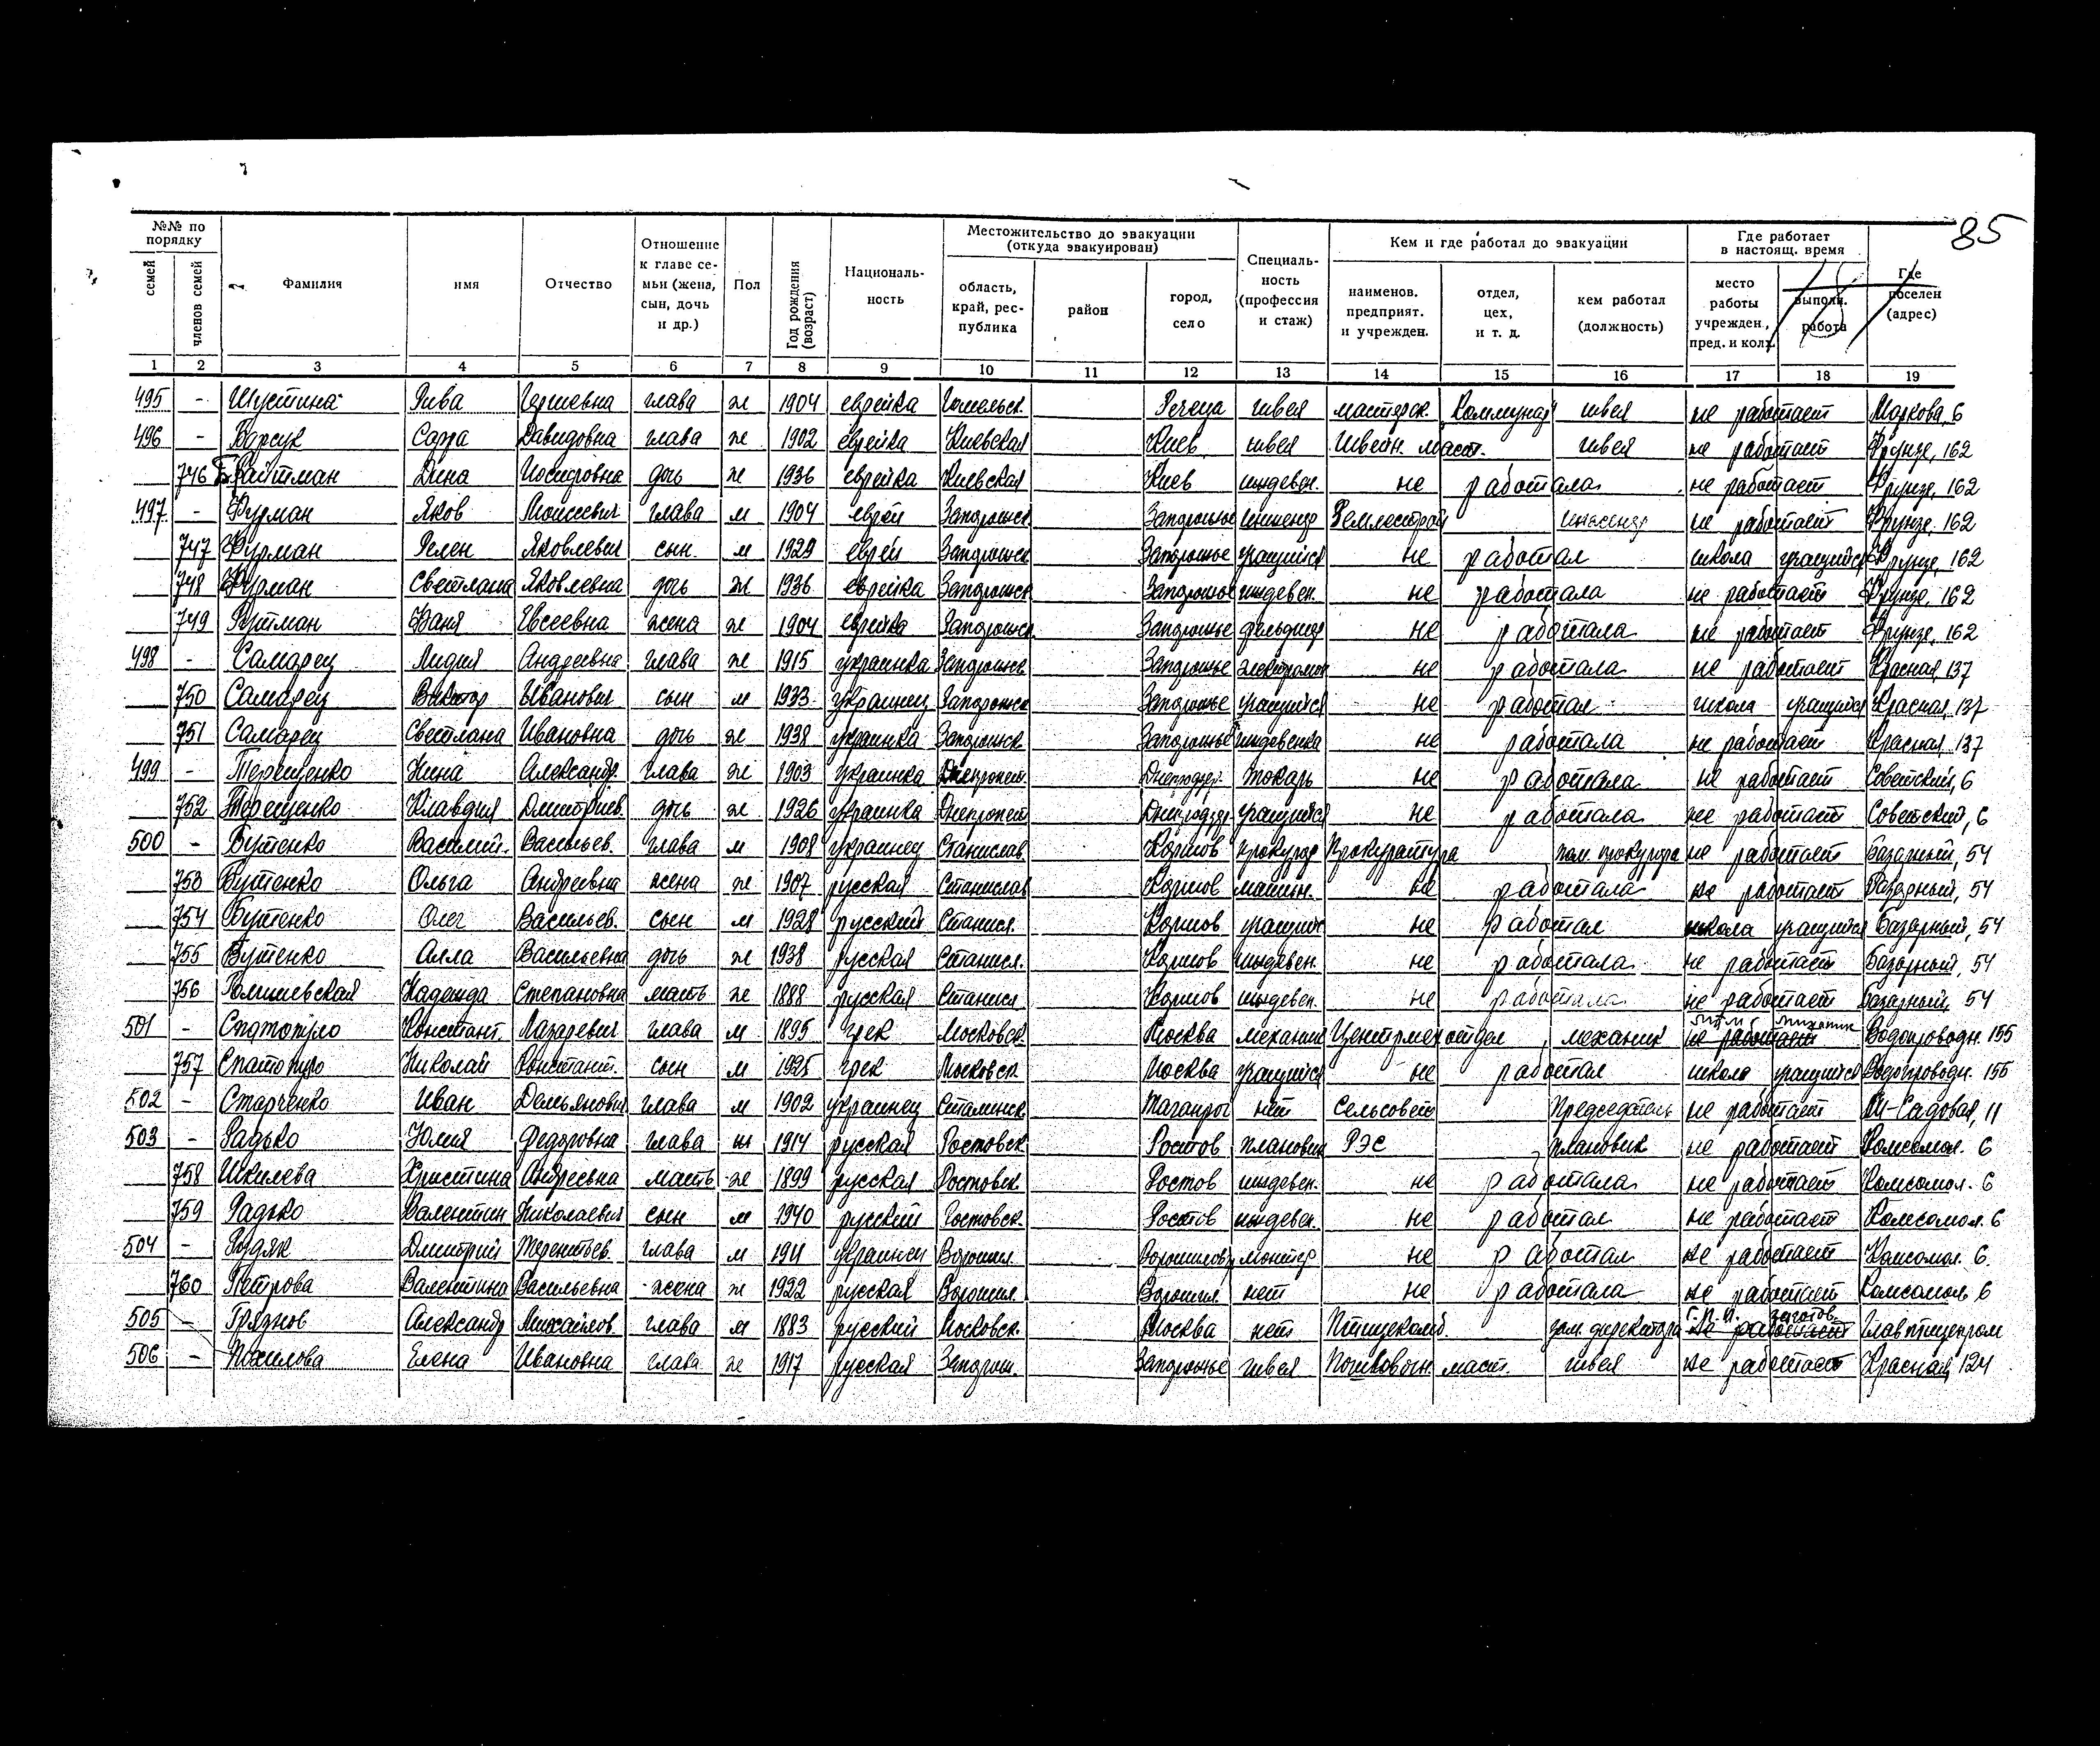 85
№№ по порядку
семей
членов семей
Фамилия
имя
Отчество
Отношение к главе семьи (жена, сын, дочь и др.)
Пол
Год рождения (возраст)
Националь-ность
Местожительство до эвакуации (откуда эвакуирован)
область, край, рес-публика
район
город, село
Специаль-ность (профессия и стаж)
Кем и где работал до эвакуации
наименов. предприят. и учрежден.
отдел, цех, и т. д.
кем работал (должность)
Где работает в настоящ. время
место работы учрежден., пред. и колх.
выполн. работа
Где поселен (адрес)
1 2 3 4 5 6 7 8 9 10 11 12 13 14 15 16 17 18 19
495 - Шустина Рива глава ж 1904 еврейка Гомельск. Речица швея мастерск. Коммунар швея не работает Маркова, 6
496 - Барсук Сарра Давидовна глава ж 1902 еврейка Киевская Киев швея Швейн. маст. швея не работает Фрунзе, 162
746 Райтман Дина Иосифовна дочь ж 1936 еврейка Киевская Киев иждевен. не работала не работает Фрунзе, 162
497 - Фурман Яков Моисеевич глава м 1904 еврей Запорожск Запорожье инженер инженер не работает Фрунзе, 162
747 Фурман Яковлевич сын м 1929 еврей Запорожск Запорожье учащийся не работал школа учащийся Фрунзе, 162
748 Фурман Светлана Яковлевна дочь ж 1936 еврейка Запорожск Запорожье иждевен. не работала не работает Фрунзе, 162
749 Ройтман Евсеевна жена ж 1904 еврейка Запорожск Запорожье фельдшер не работала не работает Фрунзе, 162
498 - Самарец Лидия Андреевна глава ж 1915 украинка Запорожск Запорожье не работала не работает Красная, 137
750 Самарец Виктор Иванович сын м 1933 украинец Запорожск Запорожье учащийся не работал школа учащийся Красная, 137
751 Самарец Светлана Ивановна дочь ж 1938 украинка Запорожск Запорожье иждевенка не работала не работает Красная, 137
499 - Терещенко Нина Александр. глава ж 1903 украинка Днепропет. Днепродзер. токарь не работала не работает Советский, 6
752 Терещенко Клавдия Дмитриев. дочь ж 1926 украинка Днепропет Днепродзер. учащийся не работала не работает Советский, 6
500 - Бутенко Василий Васильев. глава м 1908 украинец Станислав прокурор Прокуратура пом. прокурора не работает Базарный, 54
753 Бутенко Ольга Андреевна жена ж 1907 русская Станислав машин. не работала не работает Базарный, 54
754 Бутенко Олег Васильев. сын м 1928 русский Станисл. учащийс не работал школа учащийся Базарный, 54
755 Бутенко Алла Васильевна дочь ж 1938 русская Станисл. иждевен. не работала не работает Базарный, 54
756 Надежда Степановна мать ж 1888 русская Станисл. иждевен. не работала не работает Базарный, 54
501 - Констант. Лазаревич глава м 1895 грек Московск. Москва механик механик не работает механик Водопроводн. 155
757 Николай Констант. сын м 1925 грек Московск. Москва учащийся не работал школа учащийся Водопроводн. 155
502 - Старченко Иван Демьянович глава м 1902 украинец Сталинск Таганрог нет Сельсовет Председатель не работает Садовая, 11
503 - Радько Юлия Федоровна глава ж 1914 русская Ростовск Ростов плановик РЭС плановик не работает Комсомол. 6
758 Шкилева Христина Андреевна мать ж 1899 русская Ростовск Ростов иждевен. не работала не работает Комсомол. 6
759 Радько Валентин Николаевич сын м 1940 русский Ростовск Ростов иждевен. не работал не работает Комсомол. 6
504 - Рудяк Дмитрий Терентьев. глава м 1911 украинец Ворошил. Ворошилов монтер не работал не работает Комсомол. 6
760 Петрова Валентина Васильевна жена ж 1922 русская Ворошил. Ворошил. нет не работала не работает Комсомол 6
505 - Грязнов Александр Михайлов. глава м 1883 русский Московск. Москва нет Птицекомб. зам. директора не работает Г.П.П. заготов. Главптицепром
506 - Елена Ивановна глава ж 1917 русская Запорож. Запорожье швея Пошивочн. маст. швея не работает Красная, 124